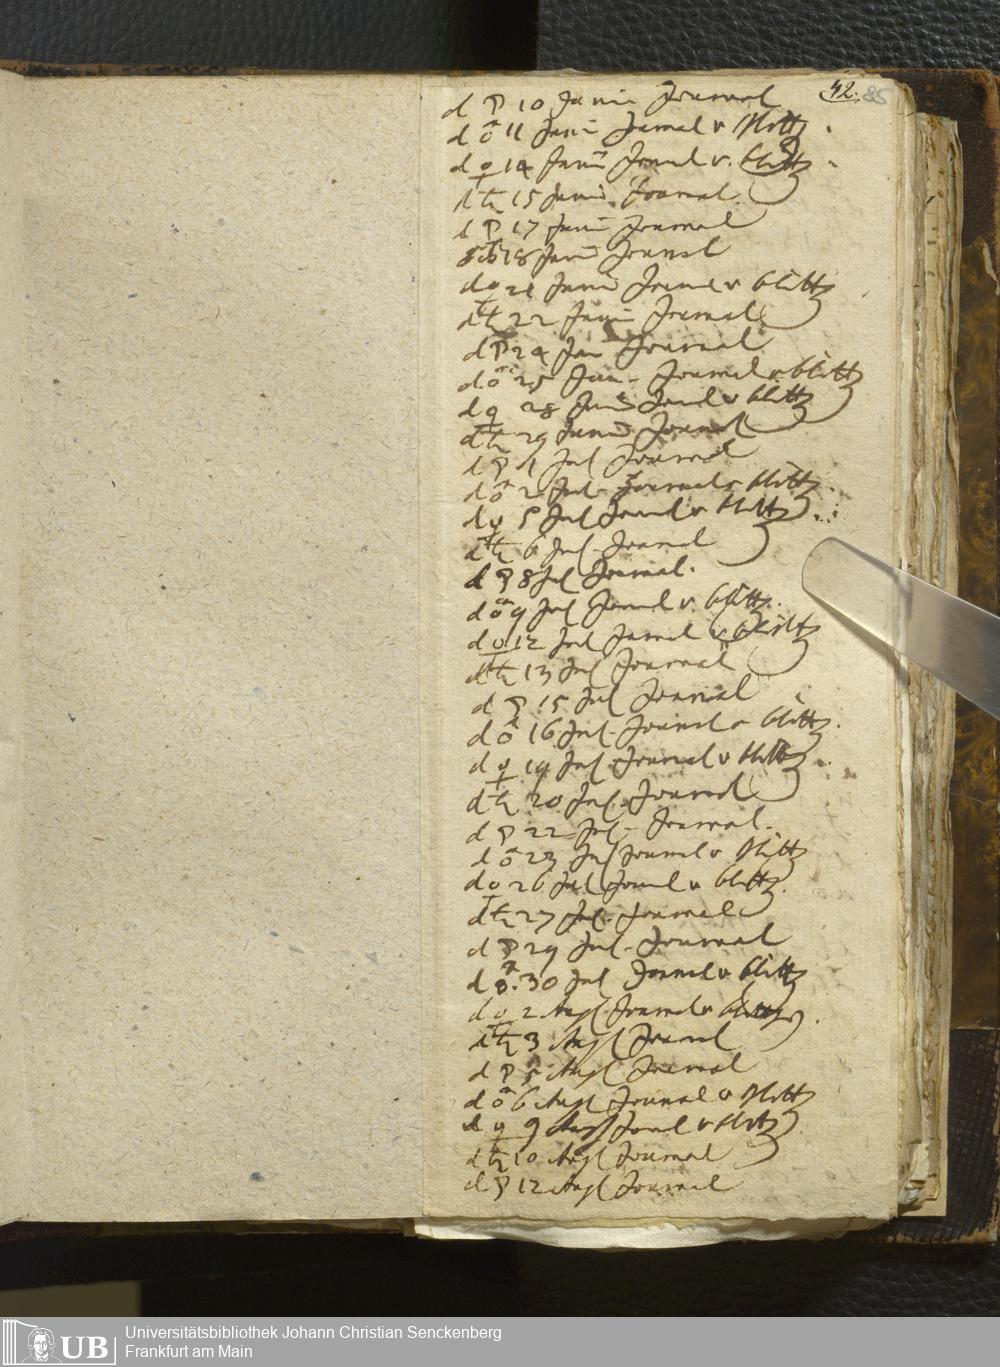 42. 85
d ☽ 10 Junii Journal
d ♂ 11 Junii Journal v blitz
d ♀ 14 Junii Journal v. blitz
d ♄ 15 Junii Journal
d ☽ 17 Junii Journal
d ♂ 18 Junii Journal
d ♀ 21 Junii Journal v blitz
d ♄ 22 Junii Journal
d ☽ 24 Jun Journal
d ♂ 25 Jun Journal v blitz
d ♀ 28 Junii Journal v blitz
d ♄ 29 Junii Journal
d ☽ 1 Jul Journal
d ♂ 2 Jul Journal v blitz
d ♀ 5 Jul Journal v blitz
d ♄ 6 Jul Journal
d ☽ 8 Jul Journal.
d ♂ 9 Jul Journal v. blitz
d ♀ 12 Jul Journal v blitz
d ♄ 13 Jul Journal
d ☽ 15 Jul Journal
d ♂ 16 Jul Journal v blitz
d ♀ 19 Jul Journal v blitz
d ♄ 20 Jul Journal
d ☽ 22 Jul Journal
d ♂ 23 Jul Journal v blitz
d ♀ 26 Jul Journal v blitz
d ♄ 27 Jul Journal
d ☽ 29 Jul Journal
d ♂ 30 Jul Journal v blitz
d ♀ 2 Augl Journal v blitz
d ♄ 3 Augl Journal
d ☽ 5 Augl Journal
d ♂ 6 Augl Journal v blitz
d ♀ 9 Augl Journal v blitz
d ♄ 10 Augl Journal
d ☽ 12 Augl Journal
UB Universitätsbibliothek Johann Christian Senckenberg
Frankfurt am Main